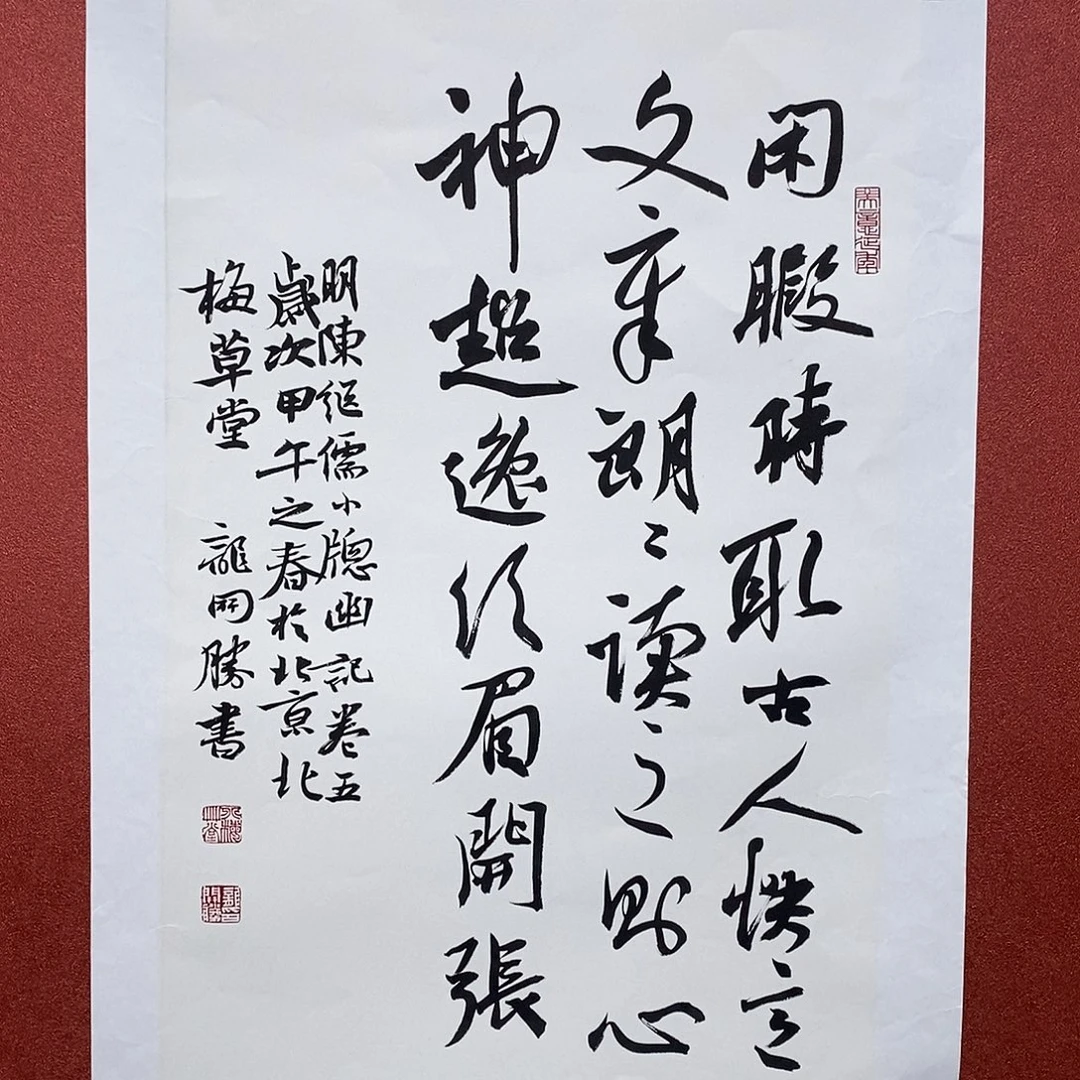 閑暇時取古人快意
文章朗〻讀之則心
神超逸須眉開張
明陳継儒小牕幽記卷五
歲次甲午之春於北京北
梅草堂 龍開勝書